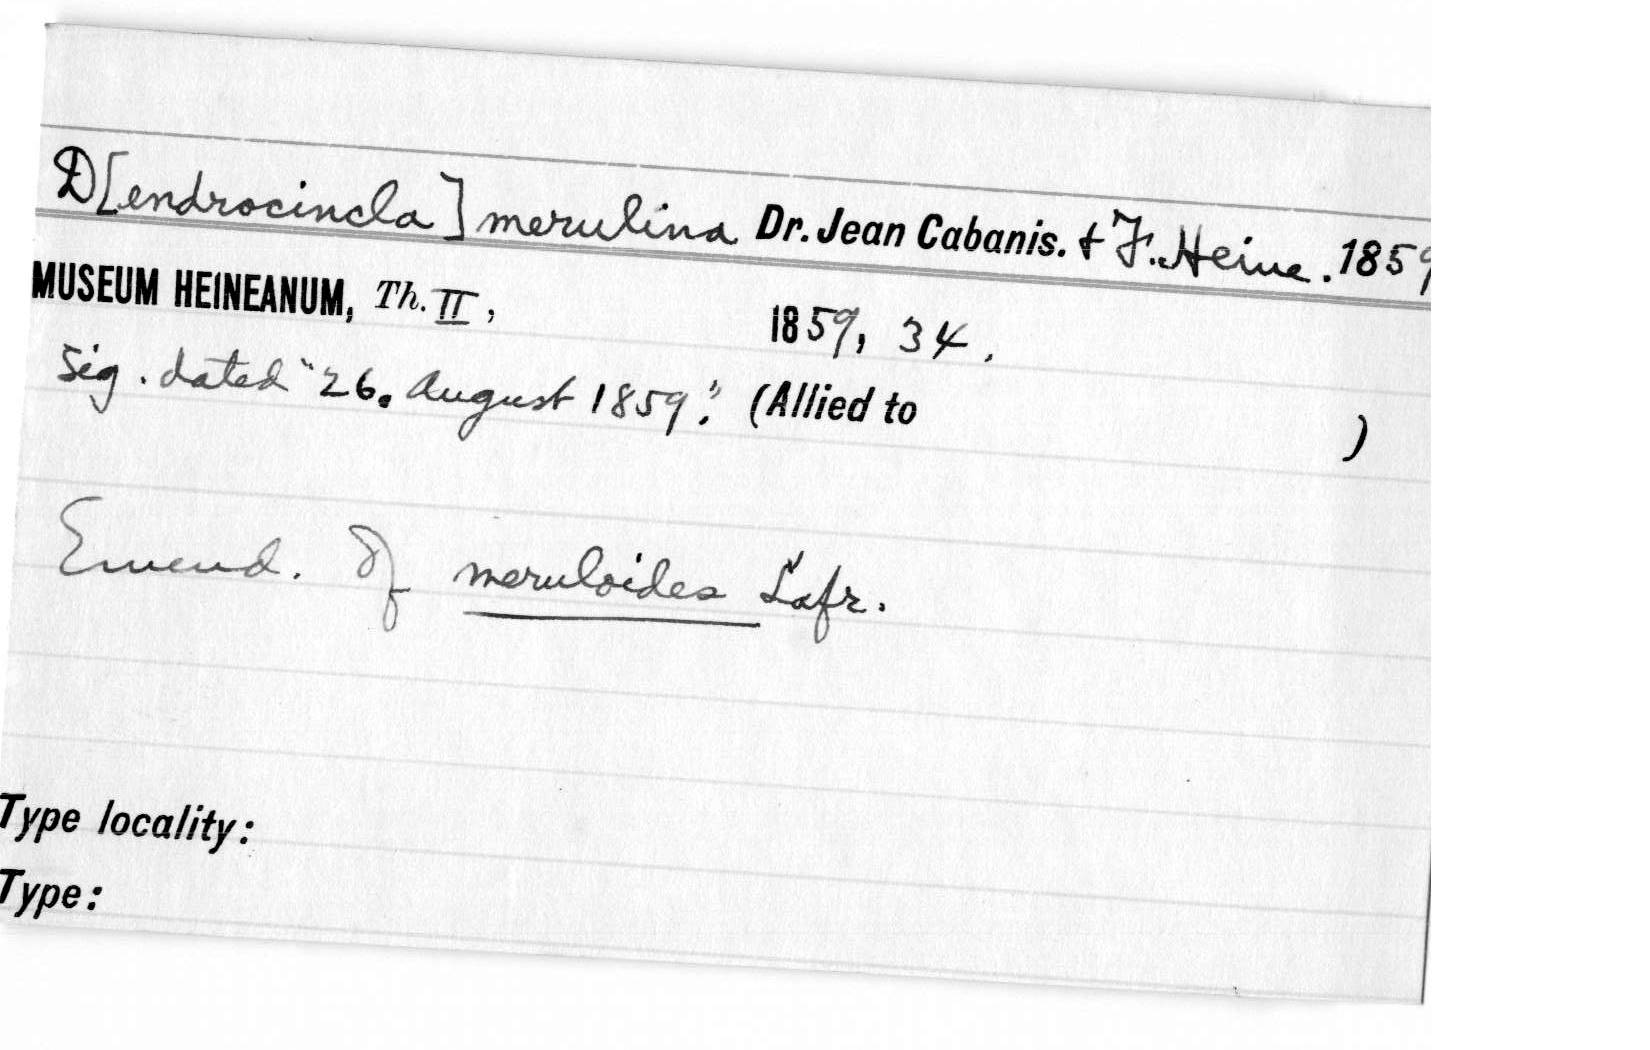 D[endrocincla] merulina Dr. Jean Cabanis. + F. Heine. 1859
MUSEUM HEINEANUM, Th. II, 1859, 34.
Sig. dated "26. August 1859." (Allied to )
Emend. Of meruloides Lafr.
Type locality:
Type: